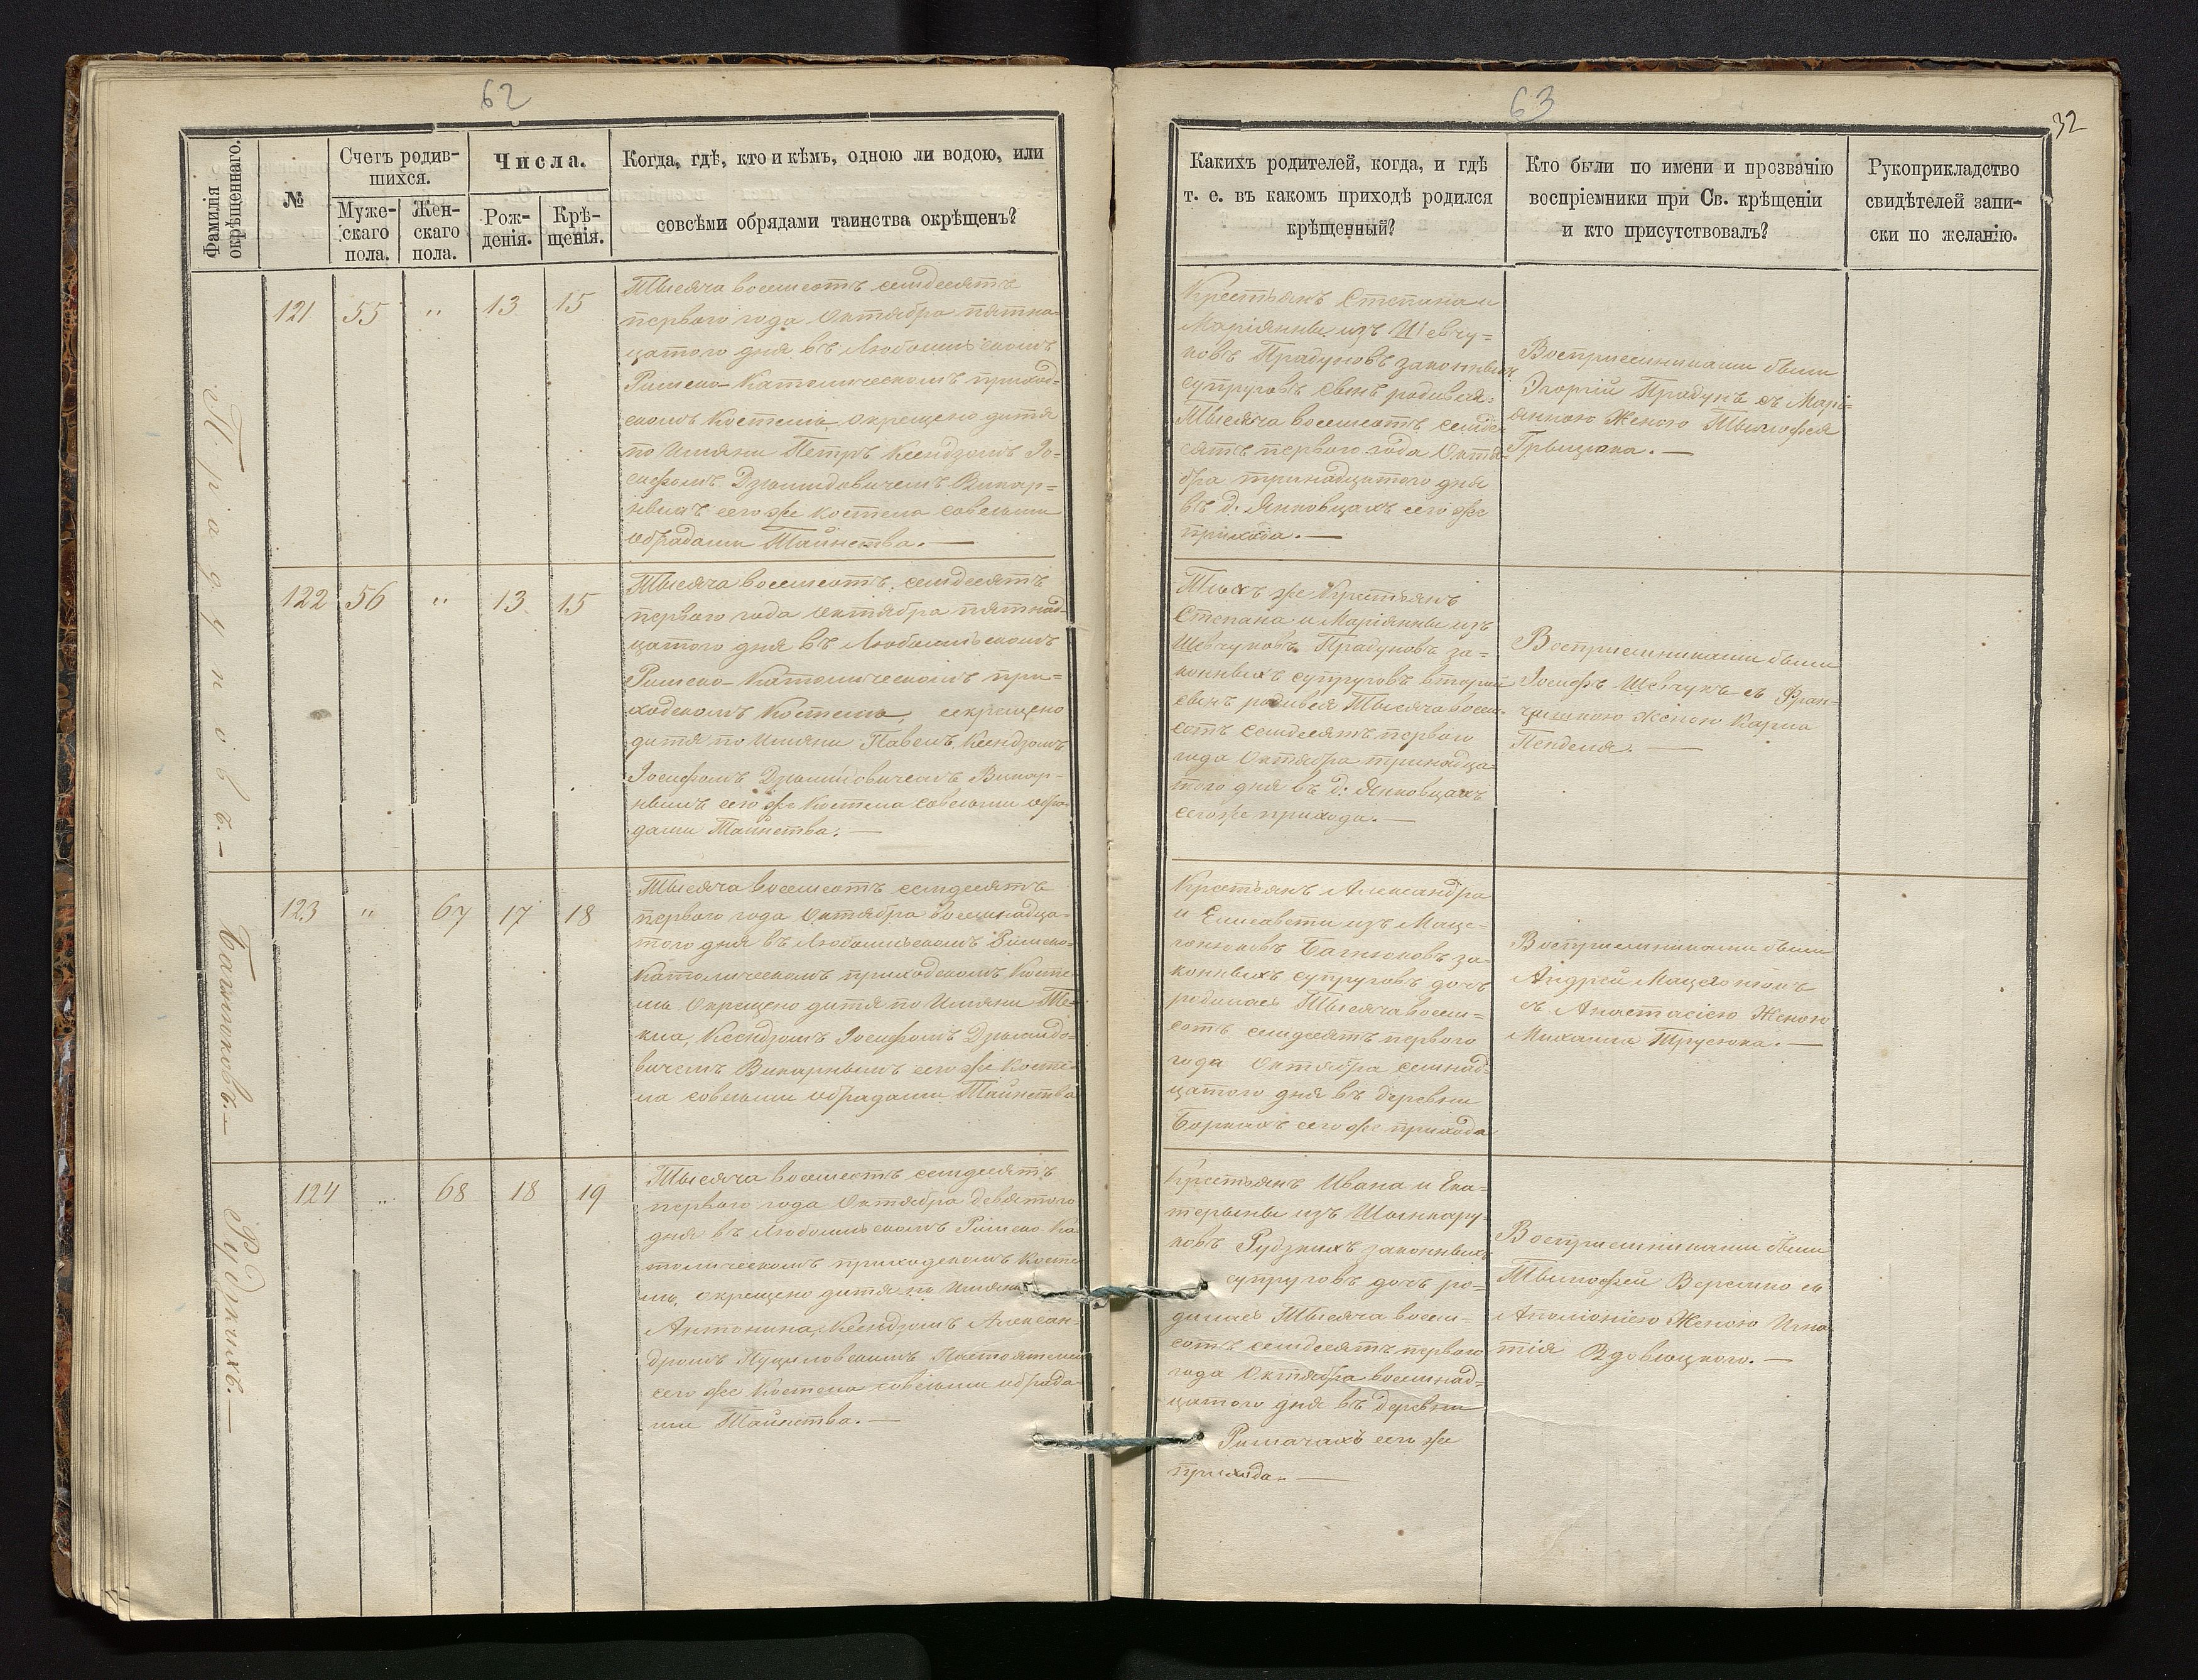 62
Фамилія окрѣщеннаго.
№
Счетъ родив-
шихся.
Муже-
скаго
пола.
Жен-
скаго
пола.
Числа.
Рож-
денія.
Крѣ-
щенія.
Когда, гдѣ, кто и кѣмъ, одною ли водою, или
совсѣми обрядами таинства окрѣщенъ?
Прадуновъ.-
121 55 " 13 15
Тысяча восемсотъ семдесятъ
первого года Октября пятна-
цатого дня въ Любомльскомъ
Римско-Католическомъ приход-
скомъ Костелѣ, окрещено дитя
по Имяни Петръ Ксендзомъ Іо-
сифомъ Дзюмидовичемъ Викар-
нымъ сего же костела совсеми
обрадами Таинства.—
122 56 " 13 15
Тысяча восемсотъ семдесятъ
первого года Октября пятнад-
цатого дня въ Любомльскомъ
Римско-Католическомъ при=
ходскомъ Костелѣ, окрещено
дитя по Имяни Павелъ, Ксендзомъ
Іосифомъ Дзюмидовичемъ Викар-
нымъ сего же Костела совсеми обра-
дами Таинства.—
Багнюковъ.—
123 " 67 17 18
Тысяча восемсотъ семдесятъ
первого года Октября восемнадца-
того дня въ Любомльскомъ Римско-
Католическомъ приходскомъ Косте-
лѣ Окрещено дитя по Имяни Те-
кла, Ксендзомъ Іосифомъ Дзюмидо-
вичемъ Викарнымъ сего же Косте-
ла совсеми обрадами Таинства
Рудзкихъ.—
124 " 68 18 19
Тысяча восемсотъ семдесятъ
первого года Октября девятого
дня въ Любомльскомъ Римско-Ка
толическомъ приходскомъ Косте
лѣ, окрещено дитя по Имяни
Антонина, Ксендзомъ Александромъ
сего же Костела совсеми обрада-
ми Таинства.—
63
32
Какихъ родителей, когда, и гдѣ
т. е. въ какомъ приходѣ родился
крѣщенный?
Кто были по имени и прозванію
воспріемники при Св. крѣщеніи
и кто присутствовалъ?
Рукоприкладство
свидѣтелей запи-
ски по желанію.
Крестьянъ Степана и
Маріянны изъ Шевчу-
ковъ Прадуновъ законныхъ
супруговъ сынъ родивься
Тысяча восемсотъ семде-
сятъ первого года Октя-
бра тринадцатого дня
въ д. Янковцахъ сего же
прихода.—
Восприемниками были
Георгій Прадунъ съ Марі-
янною Женою Тымофея
Грыцюка.—
Тѣхъ же Крестьянъ
Степана и Маріянны изъ
Шевчуковъ Прадуновъ за-
конныхъ супруговъ вторый
сынъ родивься Тысяча восем-
сотъ семдесятъ первого
года Октября тринадца-
того дня въ д. Янковцахъ
сего же прихода.—
Восприемниками были
Іосифъ Шевчукъ съ Фран-
цишкою Женою Карла
Крестьянъ Александра
и Елисавети изъ Маце-
гонюковъ Багнюковъ за-
конныхъ супруговъ дочь
родилась Тысяча восем-
сотъ семдесятъ первого
года Октября семнад-
цатого дня въ деревни
Боркахъ сего же прихода
Восприемниками были
Андрей
съ Анастасіею Женою
Михаила Трусюка.—
Крестьянъ Ивана и Ека-
терыны изъ Шинкару-
ковъ Рудзкихъ законныхъ
супруговъ дочь ро-
дилась Тысяча восем-
сотъ семдесятъ первого
года Октября восемнад-
цатого дня въ деревни
Римачахъ сего же
прихода.—
Восприемниками были
Тымофей Веремко съ
Аполіоніею Женою Игна
тія Вдовицкого.—